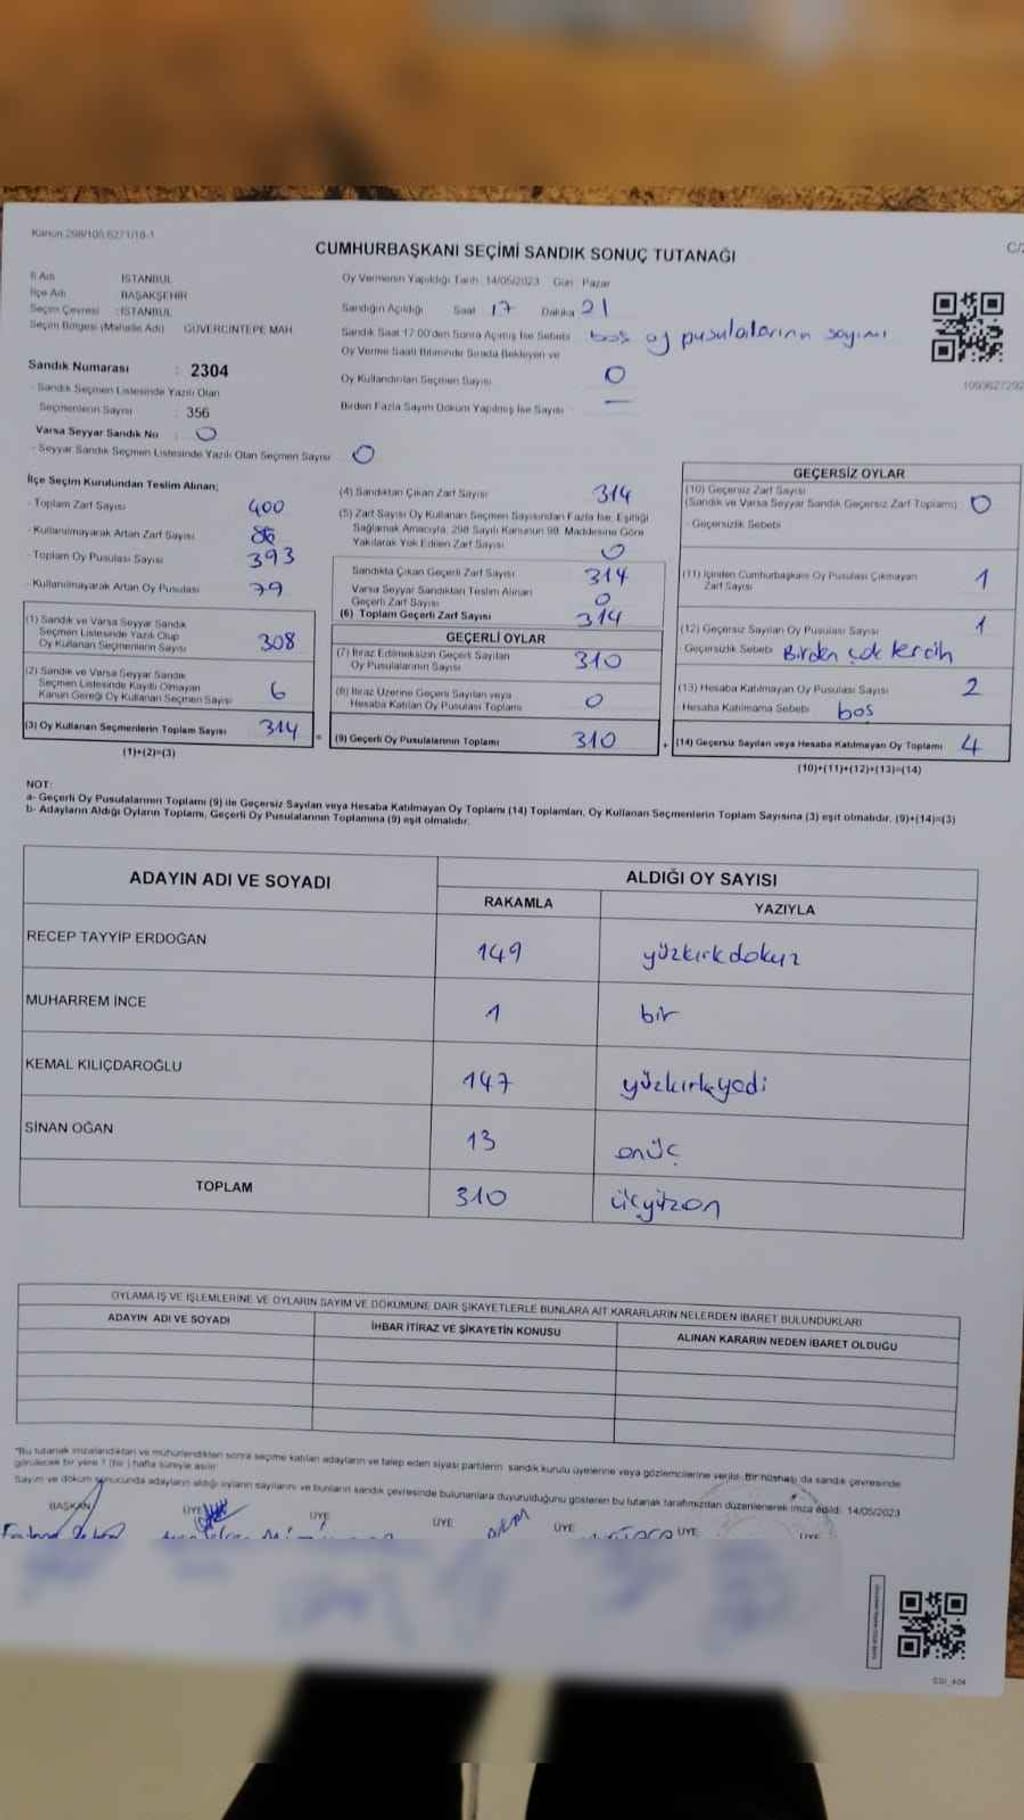 Kanun 298/105,6271/18-1
CUMHURBAŞKANI SEÇİMİ SANDIK SONUÇ TUTANAĞI
C/2
İl Adı İSTANBUL
İlçe Adı BAŞAKŞEHİR
Seçim Çevresi : İSTANBUL
Seçim Bölgesi (Mahalle Adı) GÜVERCİNTEPE MAH.
Sandık Numarası : 2304
- Sandık Seçmen Listesinde Yazılı Olan
Seçmenlerin Sayısı : 356
Varsa Seyyar Sandık No : 0
- Seyyar Sandık Seçmen Listesinde Yazılı Olan Seçmen Sayısı 0
Oy Vermenin Yapıldığı Tarih: 14/05/2023 Gün Pazar
Sandığın Açıldığı Saat 17 Dakika 21
Sandık Saat 17:00'den Sonra Açılmış İse Sebebi boş oy pusulalarının sayımı
Oy Verme Saati Bitiminde Sırada Bekleyen ve
Oy Kullandırılan Seçmen Sayısı 0
Birden Fazla Sayım Döküm Yapılmış İse Sayısı —
İlçe Seçim Kurulundan Teslim Alınan;
- Toplam Zarf Sayısı 400
- Kullanılmayarak Artan Zarf Sayısı 86
- Toplam Oy Pusulası Sayısı 393
- Kullanılmayarak Artan Oy Pusulası 79
(1) Sandık ve Varsa Seyyar Sandık
Seçmen Listesinde Yazılı Olup
Oy Kullanan Seçmenlerin Sayısı 308
(2) Sandık ve Varsa Seyyar Sandık
Seçmen Listesinde Kayıtlı Olmayan
Kanun Gereği Oy Kullanan Seçmen Sayısı 6
(3) Oy Kullanan Seçmenlerin Toplam Sayısı 314
(1)+(2)=(3)
(4) Sandıktan Çıkan Zarf Sayısı 314
(5) Zarf Sayısı Oy Kullanan Seçmen Sayısından Fazla İse, Eşitliği
Sağlamak Amacıyla, 298 Sayılı Kanunun 98. Maddesine Göre
Yakılarak Yok Edilen Zarf Sayısı 0
Sandıkta Çıkan Geçerli Zarf Sayısı 314
Varsa Seyyar Sandıktan Teslim Alınan
Geçerli Zarf Sayısı 0
(6) Toplam Geçerli Zarf Sayısı 314
GEÇERLİ OYLAR
(7) İtiraz Edilmeksizin Geçerli Sayılan
Oy Pusulalarının Sayısı 310
(8) İtiraz Üzerine Geçerli Sayılan veya
Hesaba Katılan Oy Pusulası Toplamı 0
= (9) Geçerli Oy Pusulalarının Toplamı 310
GEÇERSİZ OYLAR
(10) Geçersiz Zarf Sayısı
(Sandık ve Varsa Seyyar Sandık Geçersiz Zarf Toplamı) 0
- Geçersizlik Sebebi
(11) İçinden Cumhurbaşkanı Oy Pusulası Çıkmayan
Zarf Sayısı 1
(12) Geçersiz Sayılan Oy Pusulası Sayısı 1
Geçersizlik Sebebi Birden çok tercih
(13) Hesaba Katılmayan Oy Pusulası Sayısı 2
Hesaba Katılmama Sebebi boş
+ (14) Geçersiz Sayılan veya Hesaba Katılmayan Oy Toplamı 4
(10)+(11)+(12)+(13)=(14)
NOT:
a- Geçerli Oy Pusulalarının Toplamı (9) ile Geçersiz Sayılan veya Hesaba Katılmayan Oy Toplamı (14) Toplamları, Oy Kullanan Seçmenlerin Toplam Sayısına (3) eşit olmalıdır. (9)+(14)=(3)
b- Adayların Aldığı Oyların Toplamı, Geçerli Oy Pusulalarının Toplamına (9) eşit olmalıdır.
ADAYIN ADI VE SOYADI ALDIĞI OY SAYISI
RAKAMLA YAZIYLA
RECEP TAYYİP ERDOĞAN 149 yüzkırkdokuz
MUHARREM İNCE 1 bir
KEMAL KILIÇDAROĞLU 147 yüzkırkyedi
SİNAN OĞAN 13 onüç
TOPLAM 310 üçyüzon
OYLAMA İŞ VE İŞLEMLERİNE VE OYLARIN SAYIM VE DÖKÜMÜNE DAİR ŞİKAYETLERLE BUNLARA AİT KARARLARIN NELERDEN İBARET BULUNDUKLARI
ADAYIN ADI VE SOYADI İHBAR İTİRAZ VE ŞİKAYETİN KONUSU ALINAN KARARIN NEDEN İBARET OLDUĞU
"Bu tutanak imzalandıktan ve mühürlendikten sonra seçime katılan adayların ve talep eden siyasi partilerin sandık kurulu üyelerine veya gözlemcilerine verilir. Bir nüshası da sandık çevresinde
görülecek bir yere 1 (bir) hafta süreyle asılır.
Sayım ve döküm sonucunda adayların aldığı oyların sayılarını ve bunların sandık çevresinde bulunanlara duyurulduğunu gösteren bu tutanak tarafımızdan düzenlenerek imza edildi. 14/05/2023
BAŞKAN ÜYE ÜYE ÜYE ÜYE ÜYE ÜYE